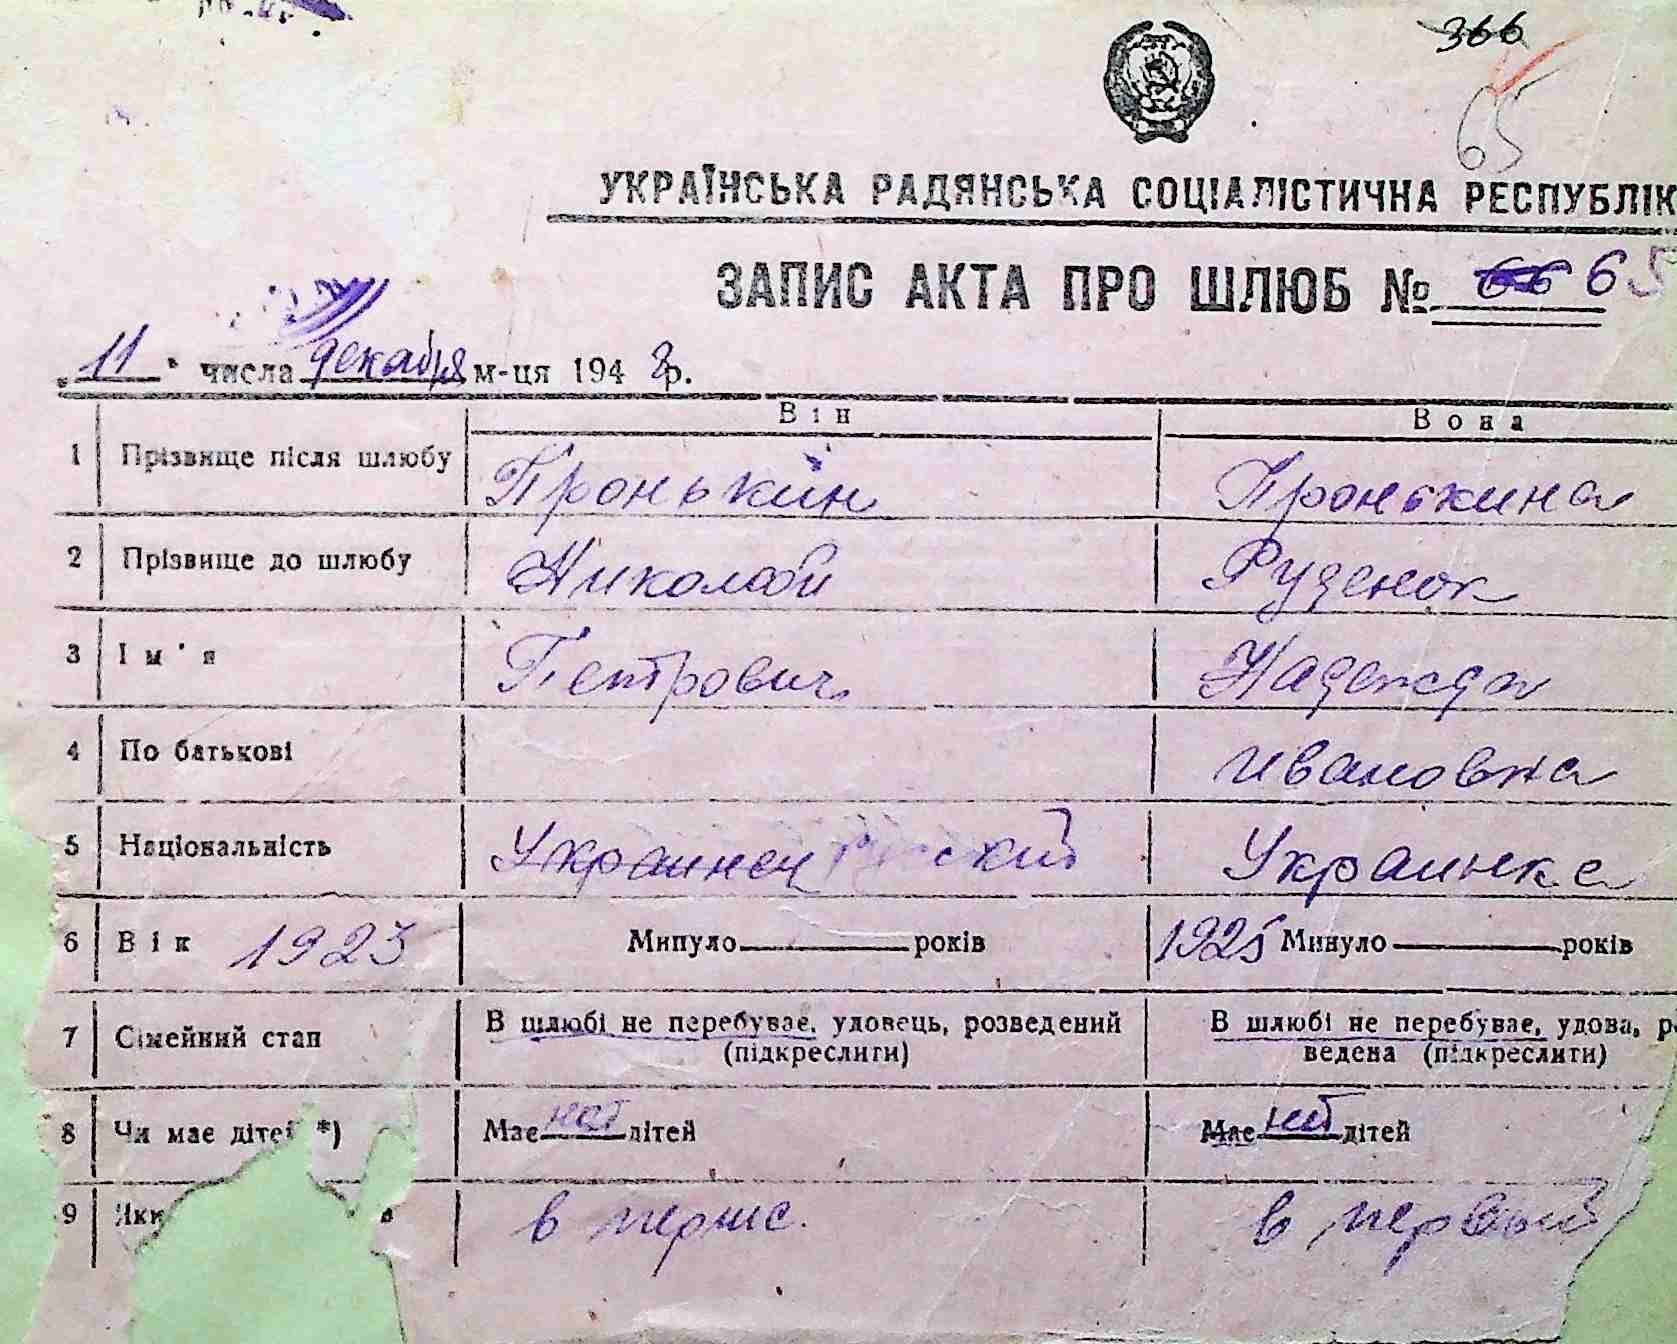 366
65
УКРАЇНСЬКА РАДЯНСЬКА СОЦІАЛІСТИЧНА РЕСПУБЛІК
ЗАПИС АКТА ПРО ШЛЮБ № 66 65
„11" числа декабря м-ця 1948 р.
Він Вона
1 Прізвище після шлюбу Пронькин Пронькина
2 Прізвище до шлюбу Николай Руденок
3 Ім'я Петрович Надежда
4 По батькові Ивановна
5 Національність Украинец русский Украинка
6 Вік 1923 Минуло років 1925 Минуло років
7 Сімейний стан В шлюбі не перебуває, удовець, розведений В шлюбі не перебуває, удова, р
(підкреслити) ведена (підкреслити)
8 Чи має дітей *) Має нет дітей Має нет дітей
9 Яки в в первый